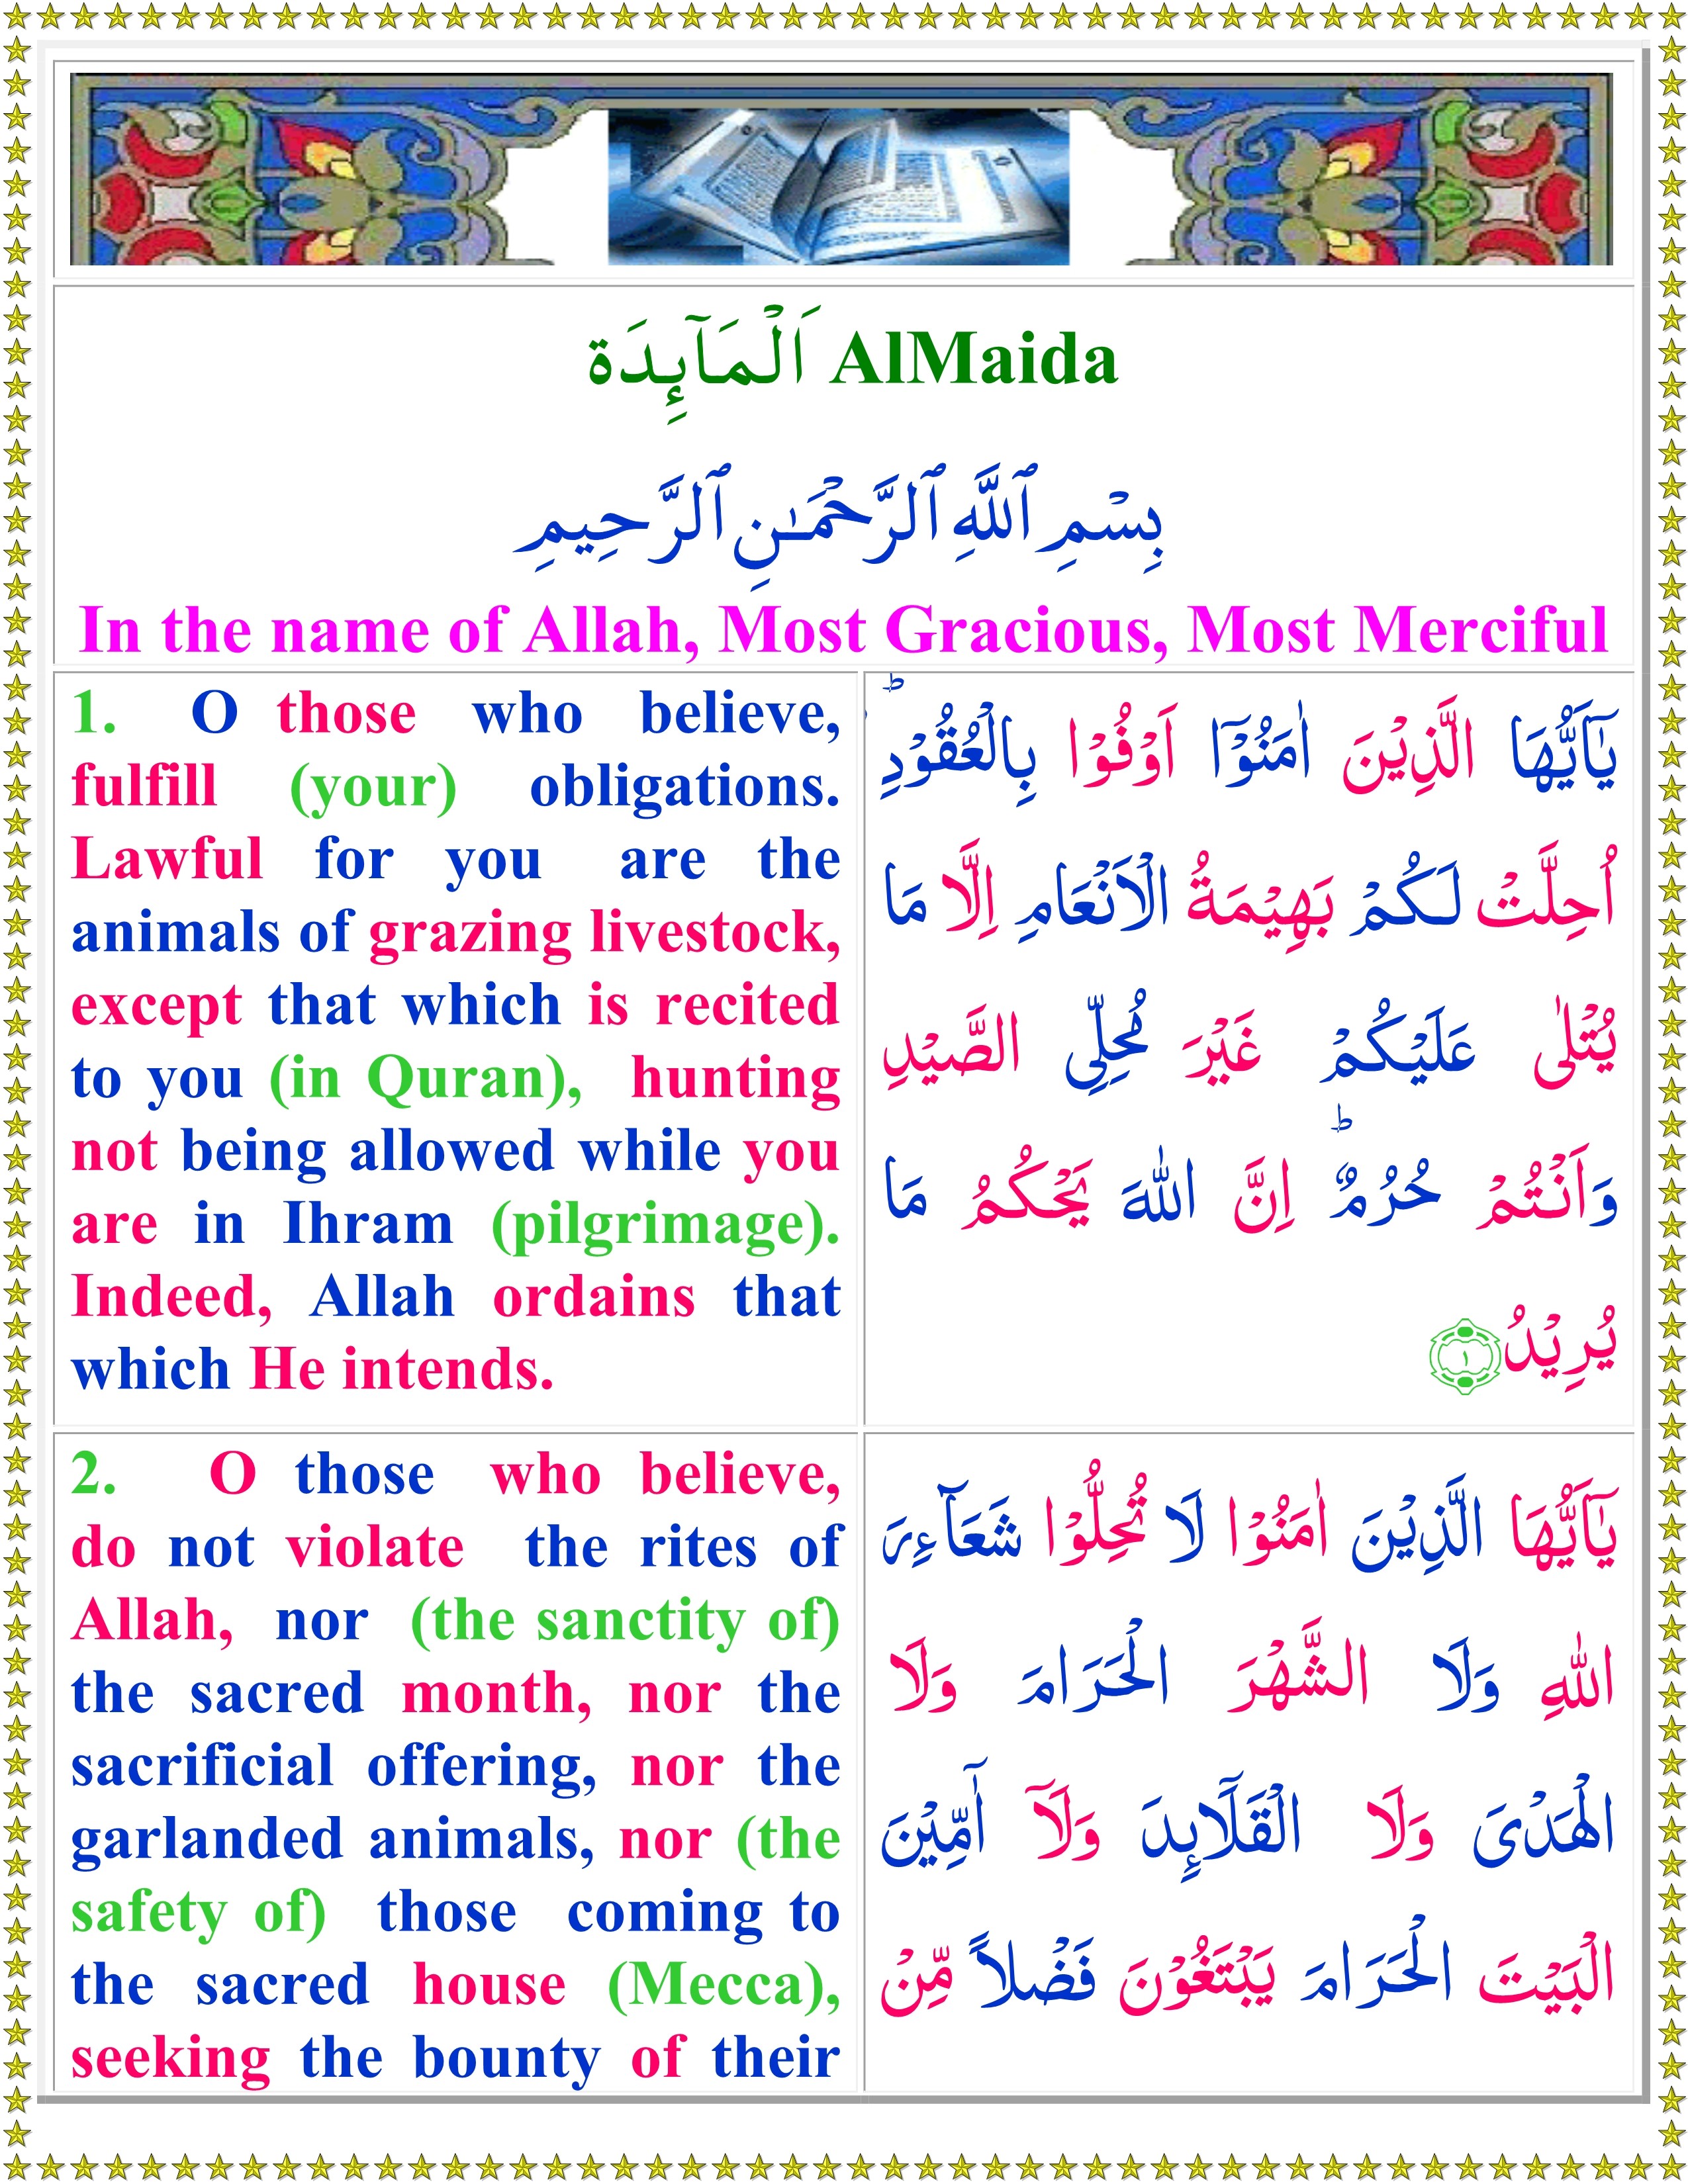 اَلْمَآٮِٕدَة AlMaida
بِسْمِ ٱللَّهِ ٱلرَّحْمَـٰنِ ٱلرَّحِيمِ
In the name of Allah, Most Gracious, Most Merciful
1. O those who believe,
fulfill (your) obligations.
Lawful for you are the
animals of grazing livestock,
except that which is recited
to you (in Quran), hunting
not being allowed while you
are in Ihram (pilgrimage).
Indeed, Allah ordains that
which He intends.
يٰۤاَيُّهَا الَّذِيْنَ اٰمَنُوْۤا اَوْفُوْا بِالْعُقُوْدِ ؕ
اُحِلَّتْ لَـكُمْ بَهِيْمَةُ الْاَنْعَامِ اِلَّا مَا
يُتْلٰى عَلَيْكُمْ غَيْرَ مُحِلِّى الصَّيْدِ
وَاَنْـتُمْ حُرُمٌ‌ ؕ اِنَّ اللّٰهَ يَحْكُمُ مَا
يُرِيْدُ ۱
2. O those who believe,
do not violate the rites of
Allah, nor (the sanctity of)
the sacred month, nor the
sacrificial offering, nor the
garlanded animals, nor (the
safety of) those coming to
the sacred house (Mecca),
seeking the bounty of their
يٰۤاَيُّهَا الَّذِيْنَ اٰمَنُوْا لَا تُحِلُّوْا شَعَآٮِٕرَ
اللّٰهِ وَلَا الشَّهْرَ الْحَـرَامَ وَلَا
الْهَدْىَ وَلَا الْقَلَٓاٮِٕدَ وَلَاۤ آٰمِّيْنَ
الْبَيْتَ الْحَـرَامَ يَبْـتَغُوْنَ فَضْلًا مِّنْ